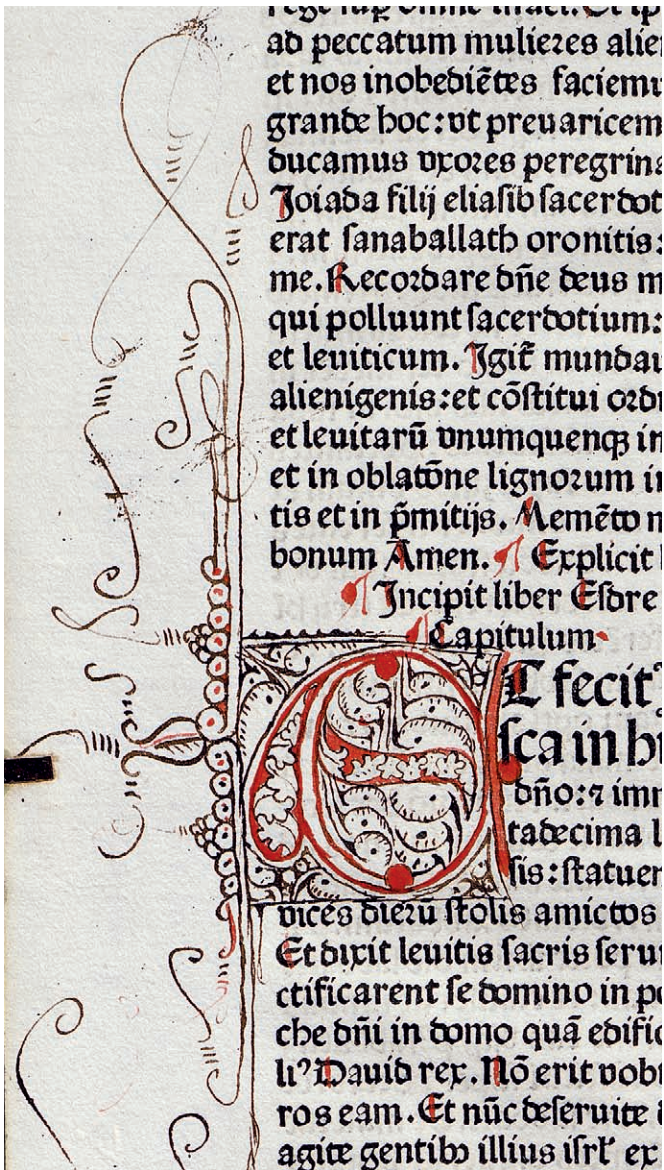 rege sup omne israel. Et ip
ad peccatum mulieres alie
et nos inobediētes faciemu
grande hoc: vt preuaricem
ducamus vxores peregrina
Joiada filij eliasib sacerdot
erat sanaballath oronitis:
me. Recordare dn̄e deus m
qui polluunt sacerdotium:
et leuiticum. Igit̄ mundau
alienigenis: et cōstitui ordi
et leuitarū vnumquenqꝫ in
et in oblatōne lignorum in
tis et in p̄mitijs. Memēto m
bonum Amen. ¶ Explicit l
¶ Incipit liber Esdre
¶ Capitulum
ET fecitꝰ
sca in hi
dn̄o: ⁊ imm
tadecima l
sis: statuen
vices dierū stolis amictos
Et dixit leuitis sacris serui
ctificarent se domino in po
che dn̄i in domo quā edific
liꝰ Dauid rex. Nō erit vobi
ros eam. Et nūc deseruite d
agite gentibꝫ illius isrl̄ ex